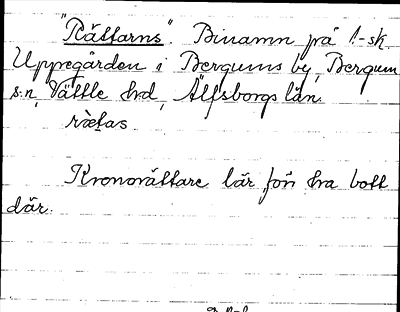 "Rättarns". Binamn på 1-sk
Uppegården i Bergums by, Bergum
s:n, Vättle hd, Älfsborgs län.
rætas
Kronorättare lär förr ha bott
där.